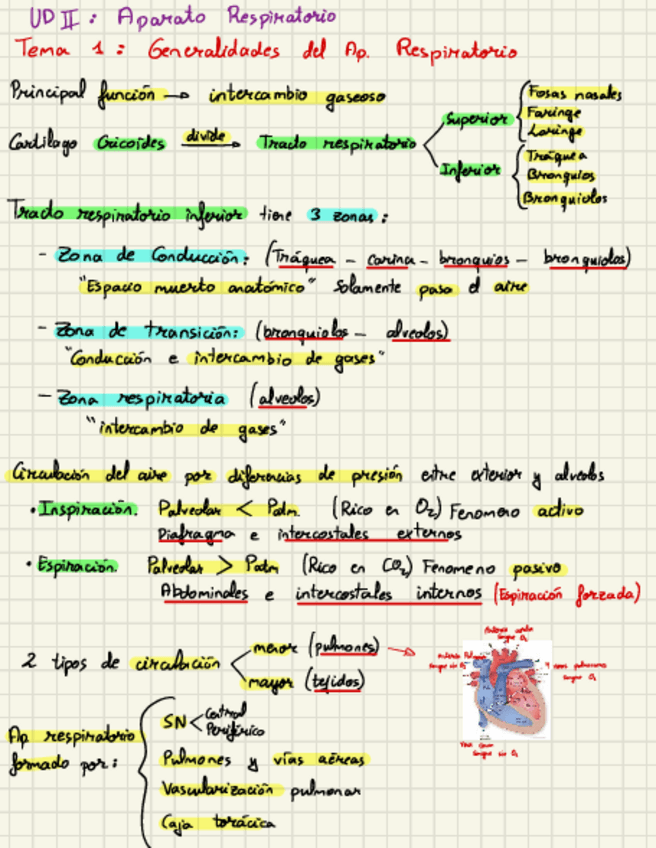 UD II: Aparato Respiratorio
Tema 1: Generalidades del Ap. Respiratorio
Principal función → intercambio gaseoso
Cartílago Cricoides divide → Tracto respiratorio
Superior
Fosas nasales
Faringe
Laringe
Inferior
Tráquea
Bronquios
Bronquiolos
Tracto respiratorio inferior tiene 3 zonas:
- Zona de Conducción: (Tráquea - carina - bronquios - bronquiolos)
"Espacio muerto anatómico" Solamente pasa el aire
- Zona de transición: (bronquiolos - alveolos)
"Conducción e intercambio de gases"
- Zona respiratoria (alveolos)
"intercambio de gases"
Circulación del aire por diferencias de presión entre exterior y alveolos
• Inspiración. Palveolar < Patm. (Rico en O₂) Fenomeno activo
Diafragma e intercostales externos
• Espiración. Palveolar > Patm (Rico en CO₂) Fenomeno pasivo
Abdominales e intercostales internos (Espiración forzada)
2 tipos de circulación
menor (pulmones) →
mayor (tejidos)
sangre O₂
sangre sin O₂
sangre O₂
sangre sin O₂
Ap respiratorio formado por:
SN
Central
Periférico
Pulmones y vías aéreas
Vascularización pulmonar
Caja torácica